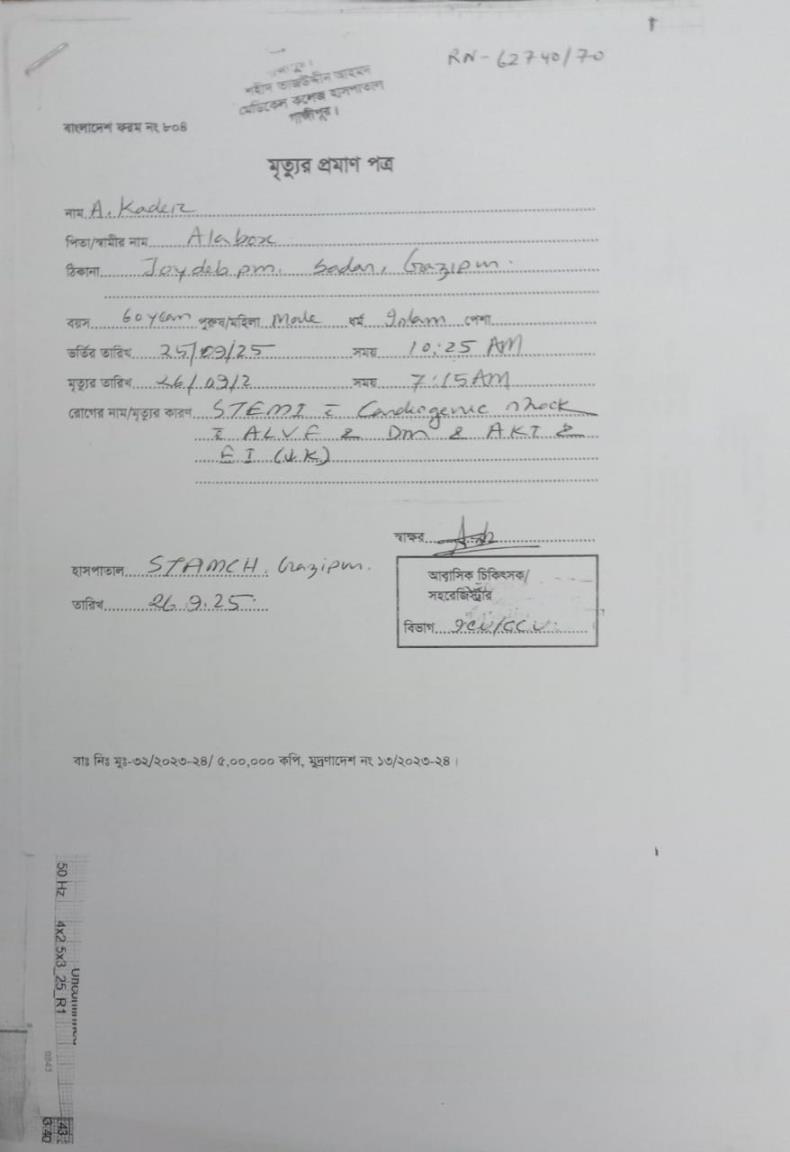 RN-62740/70
শহীদ তাজউদ্দীন আহমদ
মেডিকেল কলেজ হাসপাতাল
গাজীপুর।
বাংলাদেশ ফরম নং ৮০৪
মৃত্যুর প্রমাণ পত্র
নাম A. Kader
পিতা/স্বামীর নাম Alabox
ঠিকানা Joydebpur. Sadar, Gazipur.
বয়স 60 year পুরুষ/মহিলা Male ধর্ম Islam পেশা
ভর্তির তারিখ 25/09/25 সময় 10:25 AM
মৃত্যুর তারিখ 26/09/2 সময় 7:15 AM
রোগের নাম/মৃত্যুর কারণ STEMI c̄ Cardiogenic shock
c̄ ALVF & DM & AKI &
EI (↓K)
স্বাক্ষর
হাসপাতাল STAMCH. Gazipur.
আবাসিক চিকিৎসক/
সহরেজিস্ট্রার
তারিখ 26.9.25
বিভাগ ICU/CCU.
বাঃ নিঃ মুঃ-৩২/২০২৩-২৪/ ৫,০০,০০০ কপি, মুদ্রণাদেশ নং ১৩/২০২৩-২৪।
50 Hz 4x2.5x3_25_R1